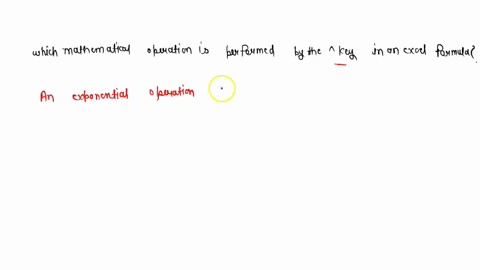 which mathematical operation is performed by the ^ key in an excel formula?
An exponential operation